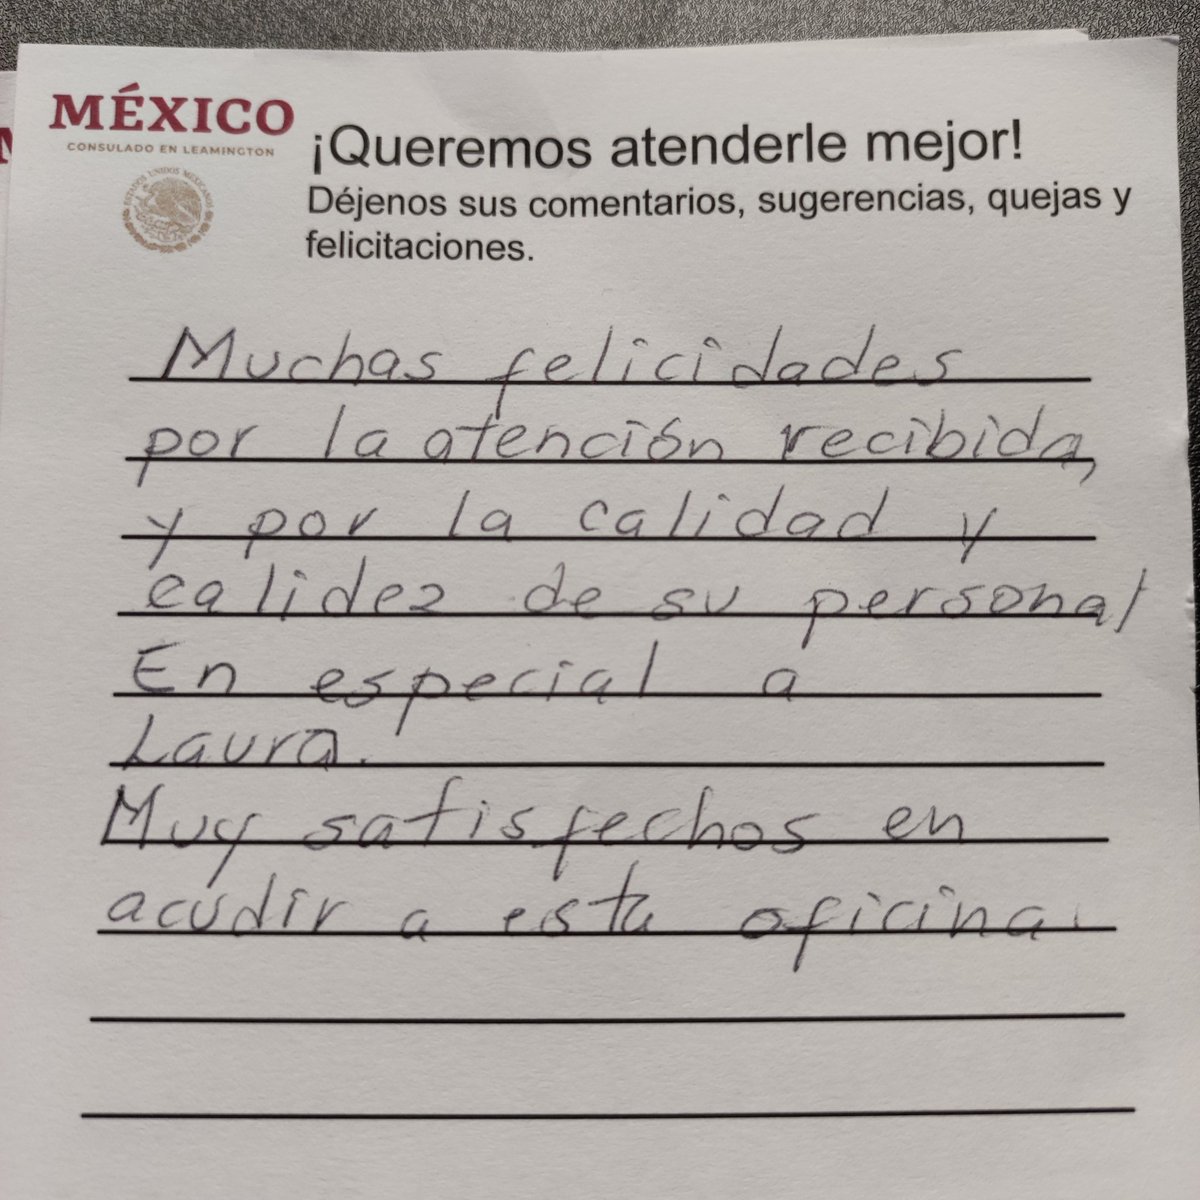 MÉXICO
CONSULADO EN LEAMINGTON
ESTADOS UNIDOS MEXICANOS
¡Queremos atenderle mejor!
Déjenos sus comentarios, sugerencias, quejas y
felicitaciones.
Muchas felicidades
por la atención recibida,
y por la calidad y
calidez de su personal
En especial a
Laura.
Muy satisfechos en
acudir a esta oficina.